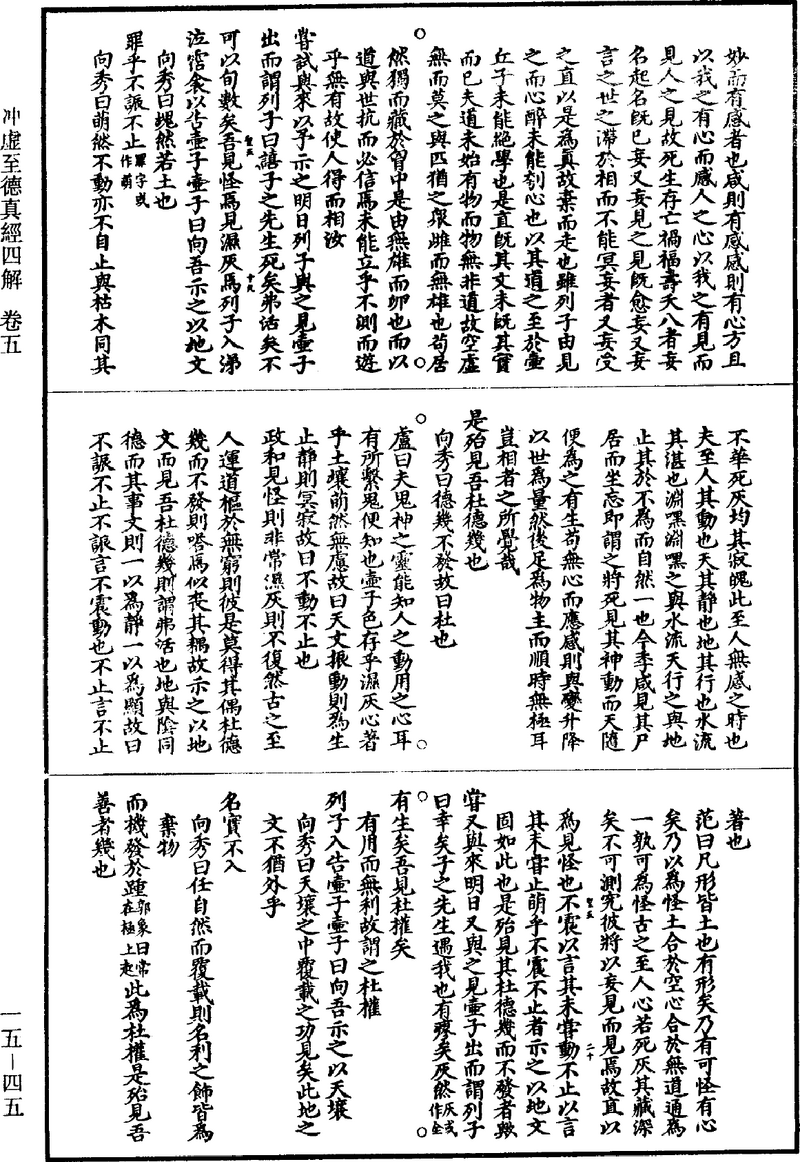 妙而有感者也咸則有感感則有心方且
以我之有心而感人之心以我之有見而
見人之見故死生存亡禍福壽夭八者妄
名起名既已妄又妄見之見既愈妄又妄
言之世之滯於相而不能冥妄者又妄受
之直以是為真故棄而走也雖列子由見
之而心醉未能刳心也以其道之至於壺
丘子未能絕學也是直既其文未既其實
而已夫道未始有物而物無非道故空虛
無而莫之與匹猶之眾雌而無雄也苟居
然獨而藏於胷中是由無雄而卵也而以
道與世抗而必信焉未能立乎不測而遊
乎無有故使人得而相汝
嘗試與來以予示之明日列子與之見壺子
出而謂列子曰譆子之先生死矣弗活矣不
可以旬數矣吾見怪焉見濕灰焉列子入涕
泣霑衾以告壺子壺子曰向吾示之以地文
向秀曰塊然若土也
罪乎不誫不止罪字或作萌
向秀曰萌然不動亦不自止與枯木同其
不華死灰均其寂魄此至人無感之時也
夫至人其動也天其靜也地其行也水流
其湛也淵嘿淵嘿之與水流天行之與地
止其於不為而自然一也今季咸見其尸
居而坐忘即謂之將死見其神動而天隨
便為之有生苟無心而應感則與變升降
以世為量然後足為物主而順時無極耳
豈相者之所覺哉
是殆見吾杜德幾也
向秀曰德幾不發故曰杜也
盧曰夫鬼神之靈能知人之動用之心耳
有所繫鬼便知也壺子色存乎濕灰心著
乎土壤萌然無慮故曰天文振動則為生
止靜則冥寂故曰不動不止也
政和見怪則非常濕灰則不復然古之至
人運道樞於無窮則彼是莫得其偶杜德
幾而不發則嗒焉似喪其耦故示之以地
文而見吾杜德幾則謂弗活也地與陰同
德而其事文則一以為靜一以為顯故曰
不誫不止不誫言不震動也不止言不止
著也
范曰凡形皆土也有形矣乃有可怪有心
矣乃以為怪土合於空心合於無道通為
一孰可為怪古之至人心若死灰其藏深
矣不可測究彼將以妄見而見焉故直以
為見怪也不震以言其未嘗動不止以言
其未嘗止萌乎不震不止者示之以地文
固如此也是殆見其杜德幾而不發者歟
嘗又與來明日又與之見壺子出而謂列子
曰幸矣子之先生遇我也有瘳矣灰然灰或作全
有生矣吾見杜權矣
有用而無利故謂之杜權
列子入告壺子壺子曰向吾示之以天壤
向秀曰天壤之中覆載之功見矣此地之
文不猶外乎
名實不入
向秀曰任自然而覆載則名利之飾皆為
棄物
而機發於踵郭象曰常在極上起此為杜權是殆見吾
善者幾也
冲虛至德真經四解 卷五
一五—四五